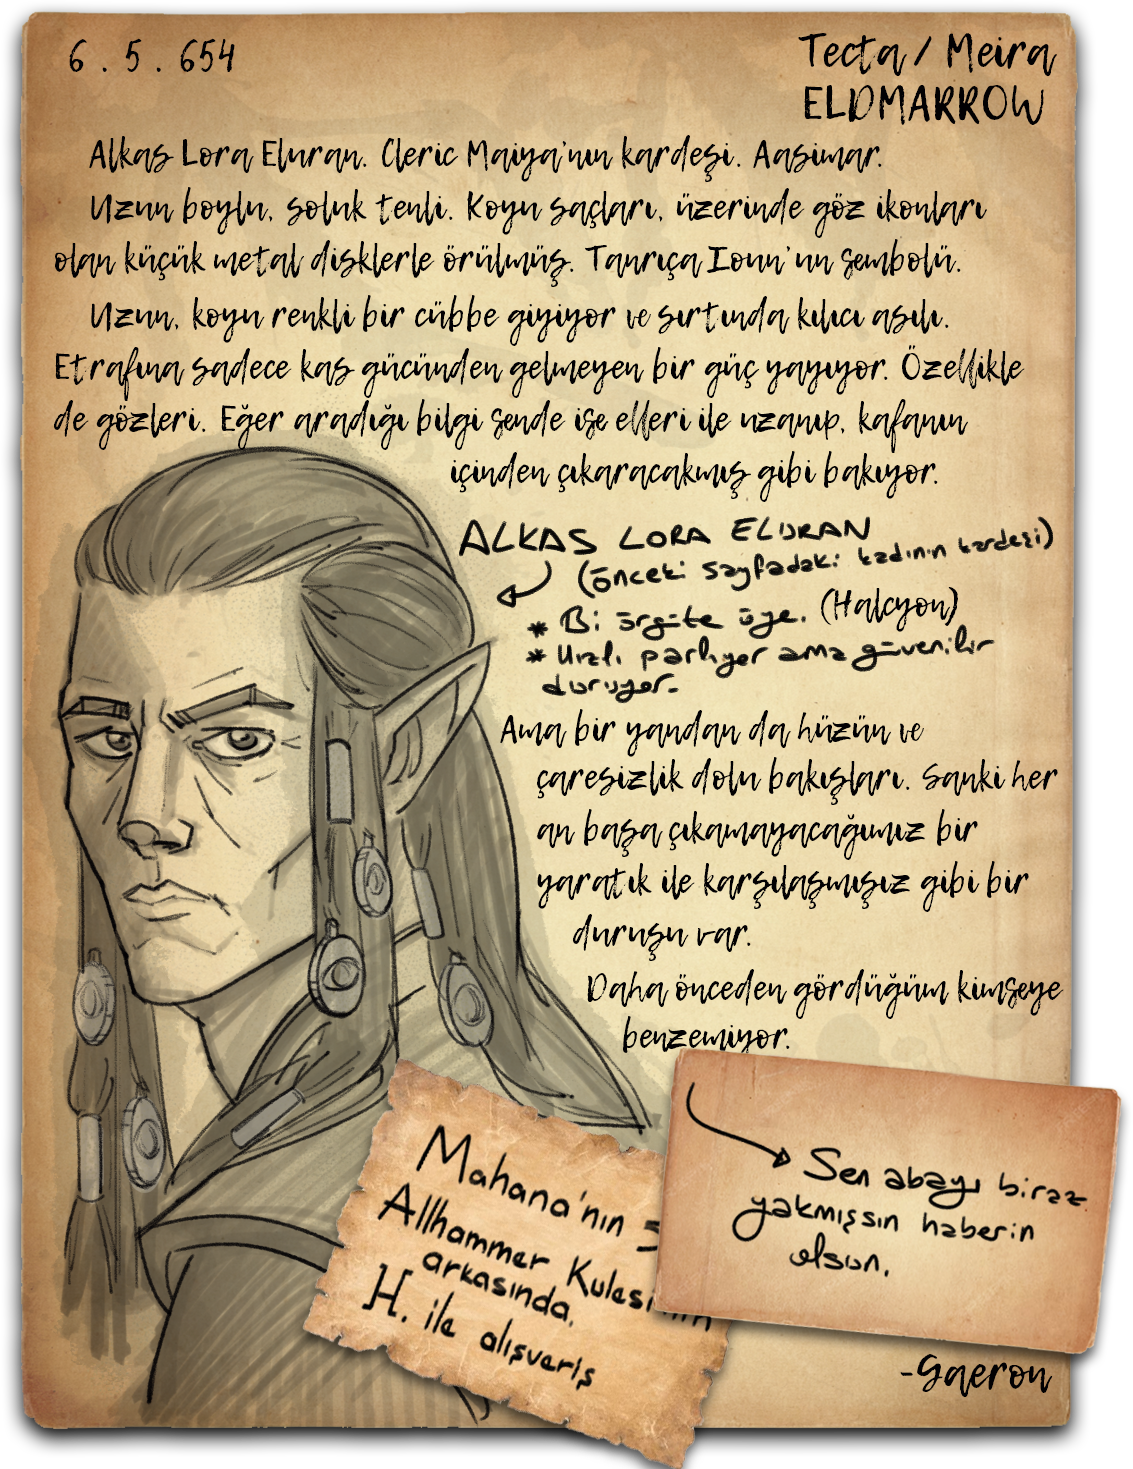 6 . 5 . 654
Tecta / Meira
ELDMARROW
Alkas Lora Eluran. Cleric Maiya'nın kardeşi. Aasimar.
Uzun boylu, soluk tenli. Koyu saçları, üzerinde göz ikonları
olan küçük metal disklerle örülmüş. Tanrıça Ioun'un sembolü.
Uzun, koyu renkli bir cübbe giyiyor ve sırtında kılıcı asılı.
Etrafına sadece kas gücünden gelmeyen bir güç yayıyor. Özellikle
de gözleri. Eğer aradığı bilgi sende ise elleri ile uzanıp, kafanın
içinden çıkaracakmış gibi bakıyor.
ALKAS LORA ELURAN
(önceki sayfadaki kadının kardeşi)
* Bi örgüte üye. (Halcyon)
* Hızlı parlıyor ama güvenilir
duruyor.
Ama bir yandan da hüzün ve
çaresizlik dolu bakışları. Sanki her
an başa çıkamayacağımız bir
yaratık ile karşılaşmışız gibi bir
duruşu var.
Daha önceden gördüğüm kimseye
benzemiyor.
Mahana'nın
Allhammer Kulesi'nin
arkasında.
H. ile alışveriş
Sen abayı biraz
yakmışsın haberin
olsun.
-Gaeron